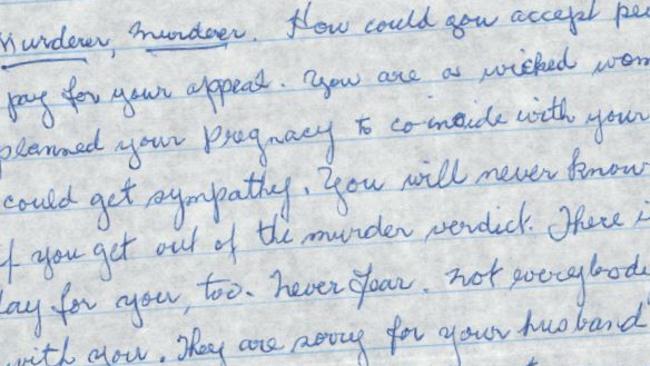 Murderer, Murderer. How could you accept
pay for your appeal. You are a wicked
planned your Pregnacy to co-incide with your
could get sympathy. You will never know
if you get out of the murder verdict. There
day for you, too. Never fear. not everybody
with you. They are sorry for your husband